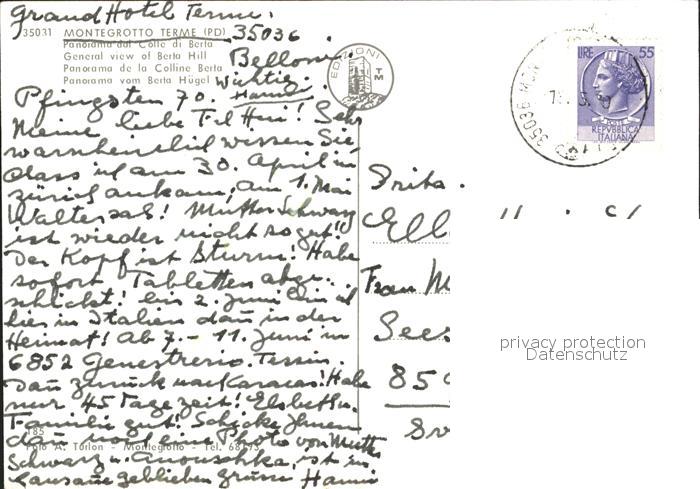 Grand Hotel Terme.
35031 MONTEGROTTO TERME (PD) 35036
Panorama dal Colle di Berta
General view of Berta Hill
Panorama de la Colline Berta
Panorama vom Berta Hügel
Belloni.
Wichtig.
EDIZIONI TM
LIRE 55
REPVBBLICA
ITALIANA
35036 MON
Pfingsten 70. Hanni
Meine liebe Frl Heri! Sehr
warscheinlich wissen Sie,
dass ich am 30. April in
Zürich ankam, am 1. Mai
Walter sah! Mutter Schwarz
ist wieder nicht so gut!
Der Kopf ist Sturm! Habe
sofort Tabletten abge-
schickt! bis 2. Juni bin ich
hier in Italien dan in der
Heimat! Ab 7. - 11. Juni in
6852 Genestrerio. Tessin.
Dan zurück nach Caracas! Habe
nur 45 Tage Zeit! Elsbeth u.
Familie gut! Schicke Ihnen
dan noch eine Photo von Mutter
Schwarz u. Anouschka, ist in
Lausanne geblieben grüsse Hanni
Frau M
See
85
185
Foto A. Turlon - Montegrotto - Tel. 68175
privacy protection
Datenschutz